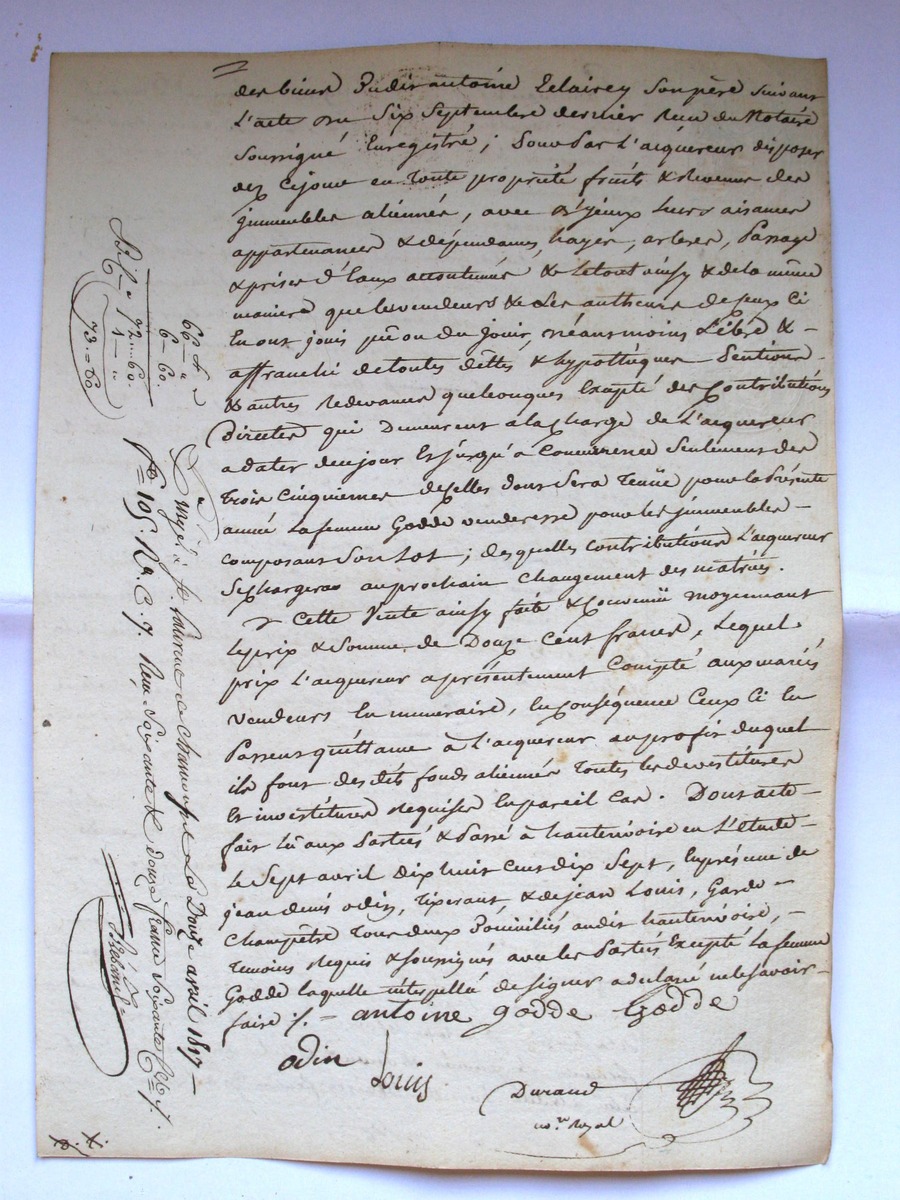 des biens dudit antoine Teloirey son père suivant
L'acte du Six Septembre dernier Reçu du Notaire
Soussigné Enregistré; pour par L'acquereur disposer
dez cejour en toute propriété fruits & Revenus des
jmmeubles aliennés, avec d'yceux Leurs aisances
appartenances & dépendances, hayes, arbres, Passage
& prises d'Eaux accoutumés & letout ainsy & delamême
maniere que lesvendeurs & Les autheurs de Ceux Ci
En ont jouis pû ou du jouir, néansmoins Libre &
affranchi detoutes dettes & hypothèques Rentions
& autres Redevances quelconques Excepté des Contributions
Directes qui Demeurent alaCharge de L'acquereur
adater decejour Et jusqu'à Concurrence Seulement des
Trois Cinquiemes deCelles dont Sera Tenüe pour la Présente
année La femme Godde venderesse pour les jmmeubles
composant Son Lot; desquelles contributions L'acquereur
SeChargera auprochain Changement des matrices.
Cette Vente ainsy faite & Convenüe moyennant
Leprix & Somme de Douze Cent francs, Lequel
prix L'acquereur aprésentement Compté aux mariés
Vendeurs En numeraire, En Conséquence Ceux Ci En
Passent quittance à L'acquereur auprofit duquel
ils font des dits fonds aliennés Toutes les devestitures
Et investitures Requises Enpareil Cas. Dont acte
fait Lû aux Parties & Passé à hauterivoire en L'étude
Le Sept avril Dix huit Cent dix Sept, Enprésence de
jean denis odin, Tixerant, & de jean Louis, Garde
Champêtre Tous deux Domiciliés audit hauterivoire,
Temoins Requis & Soussignés avec les Parties Excepté La femme
Godde laquelle interpellée de Signer a declaré nelesavoir
faire ./. antoine godde Godde
odin
Louis
Durand
no.re Royal
66 — "
6 — 60
72 — 60
1 — "
73 — 60
Enregé à St. Laurent de Chamousset Le Douze avril 1817
fo 105 Ro. C 9. Reçu Soixante & douze francs Soixante